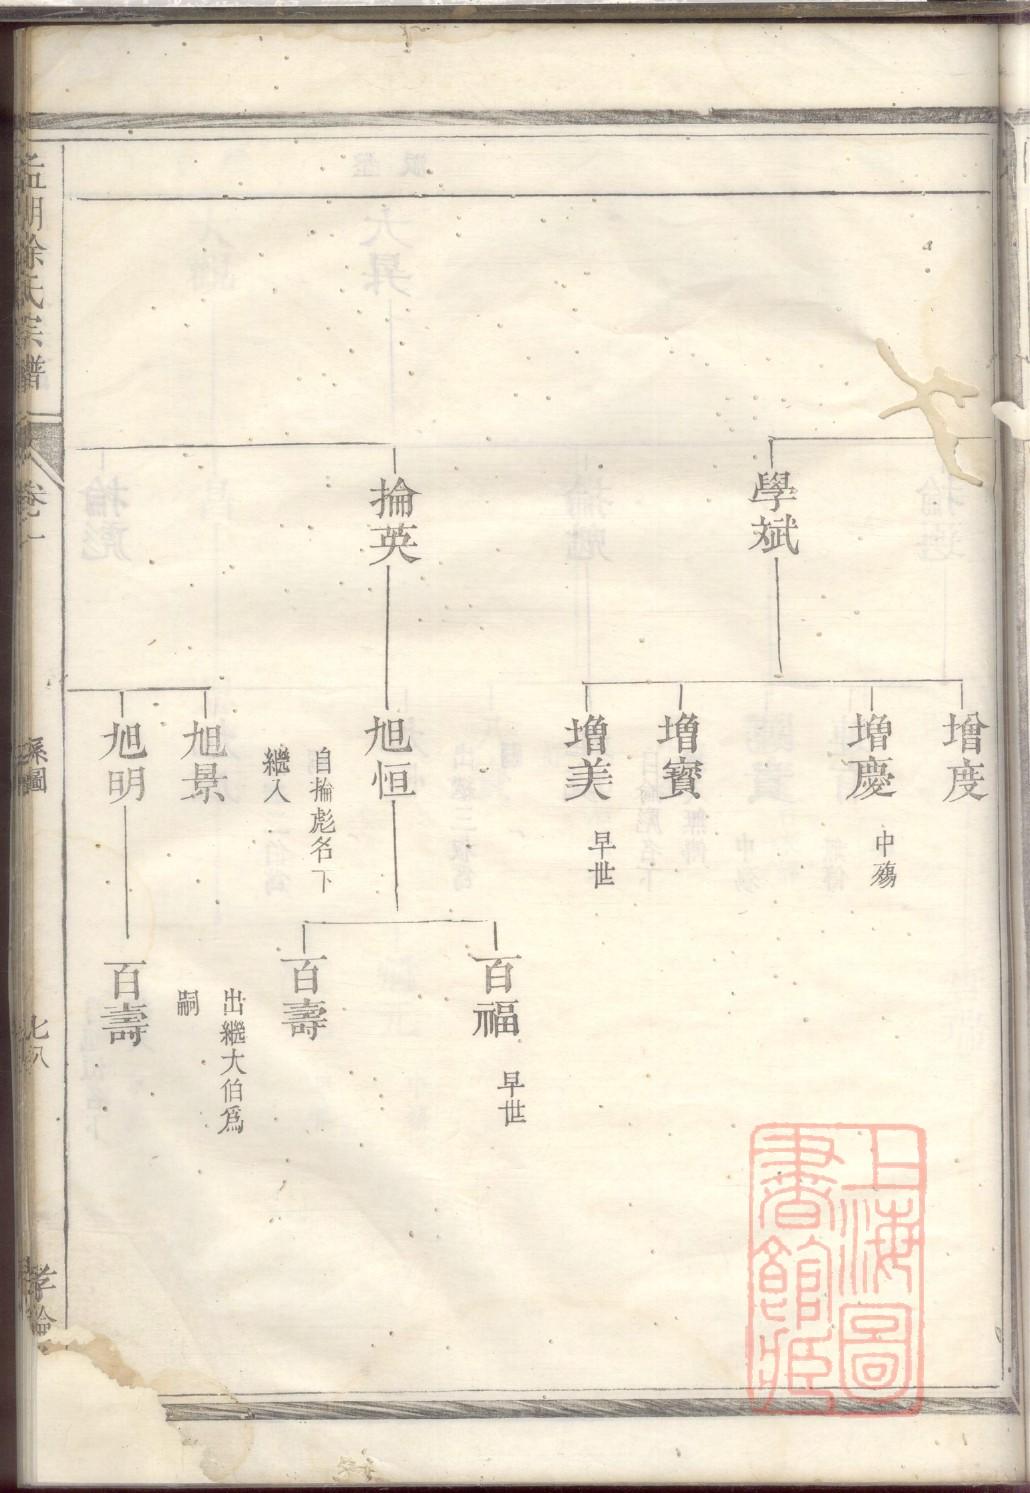 學斌
增度
增慶
中殤
增寶
增美
早世
掄英
旭恒
自掄彪名下
繼入
百福
早世
百壽
出繼大伯爲
嗣
旭景
旭明
百壽
徐氏宗譜
卷一
系圖
上海圖
書館藏